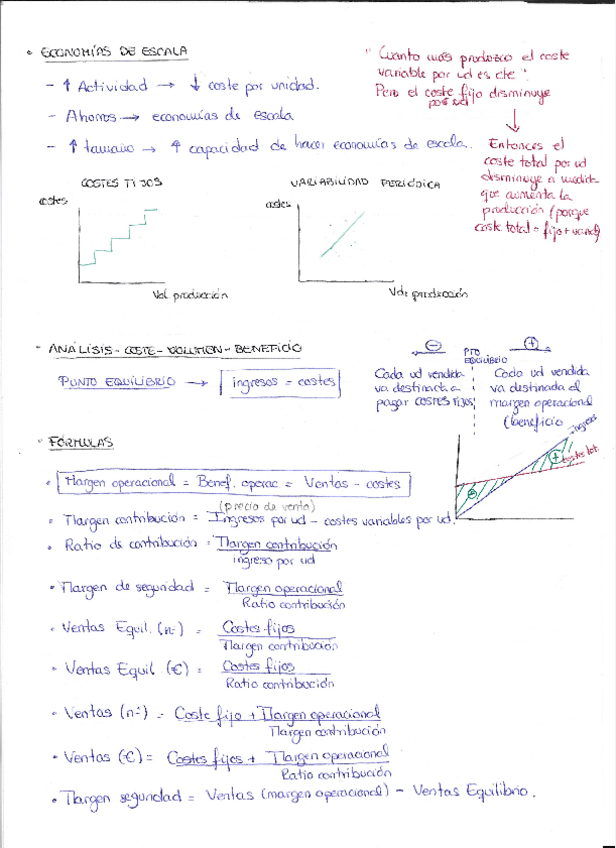 • ECONOMÍAS DE ESCALA
- ↑ Actividad → ↓ coste por unidad.
- Ahorros → economías de escala
- ↑ tamaño → ↑ capacidad de hacer economías de escala.
"Cuanto más produzco el coste
variable por ud es cte".
Pero el coste fijo disminuye
por ud
↓
Entonces el
coste total por ud
disminuye a medida
que aumenta la
producción (porque
coste total = fijo + variab)
COSTES FIJOS
costes
Vol. producción
VARIABILIDAD PERIÓDICA
costes
Vol. producción
- ANÁLISIS - COSTE - VOLUMEN - BENEFICIO
PUNTO EQUILIBRIO → ingresos = costes
⊖
PTO
EQUILIBRIO
⊕
Cada ud vendida
va destinada a
pagar COSTES FIJOS
Cada ud vendida
va destinada al
margen operacional
(beneficio
ingresos
costes tot.
⊖
⊕
• FÓRMULAS
• Margen operacional = Benef. operac = Ventas - costes
(precio de venta)
• Margen contribución = Ingresos por ud - costes variables por ud.
• Ratio de contribución = Margen contribución
ingreso por ud
• Margen de seguridad = Margen operacional
Ratio contribución
• Ventas Equil. (nº) = Costes fijos
Margen contribución
• Ventas Equil (€) = Costes fijos
Ratio contribución
• Ventas (nº) = Coste fijo + Margen operacional
Margen contribución
• Ventas (€) = Costes fijos + Margen operacional
Ratio contribución
• Margen seguridad = Ventas (margen operacional) - Ventas Equilibrio.